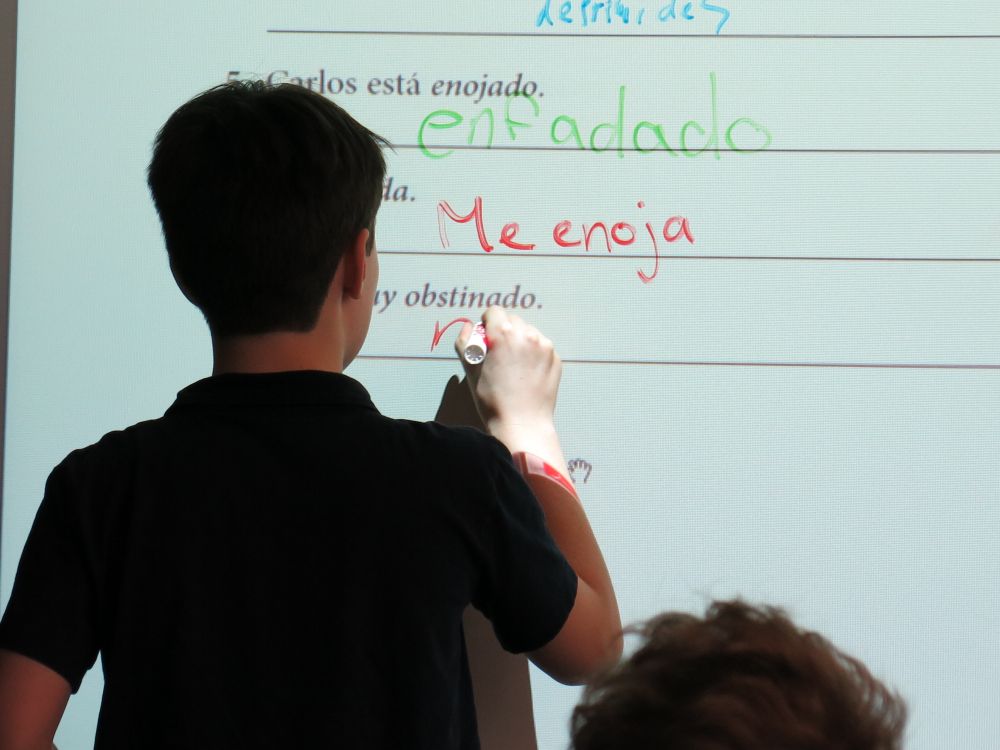 deprimides
5. Carlos está enojado.
enfadado
da.
Me enoja
uy obstinado.